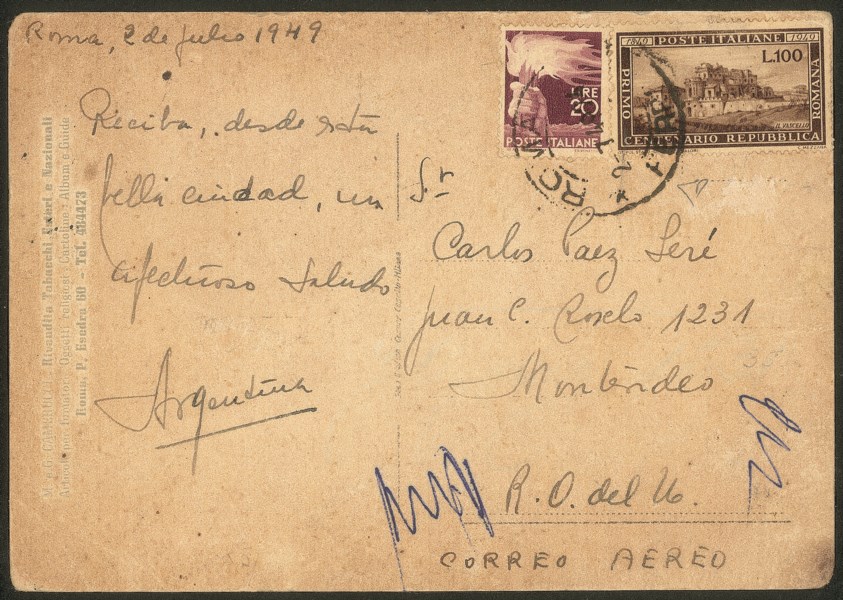 Roma, 2 de Julio 1949
Reciba, desde esta
bella ciudad, un
afectuoso saludo
Argentina
Sr
Carlos Paez Seré
Juan C. 1231
Montevideo
R. O. del U.
CORREO AEREO
LIRE
20
POSTE ITALIANE
1849 POSTE ITALIANE 1949
L.100
PRIMO
CENTENARIO REPUBBLICA
ROMANA
IL VASCELLO
Rivendita Tabacchi Esteri e Nazionali
Articoli per fumatori - Oggetti religiosi - Cartoline - Album e Guide
Roma, P. Esedra 60 - Tel. 484473